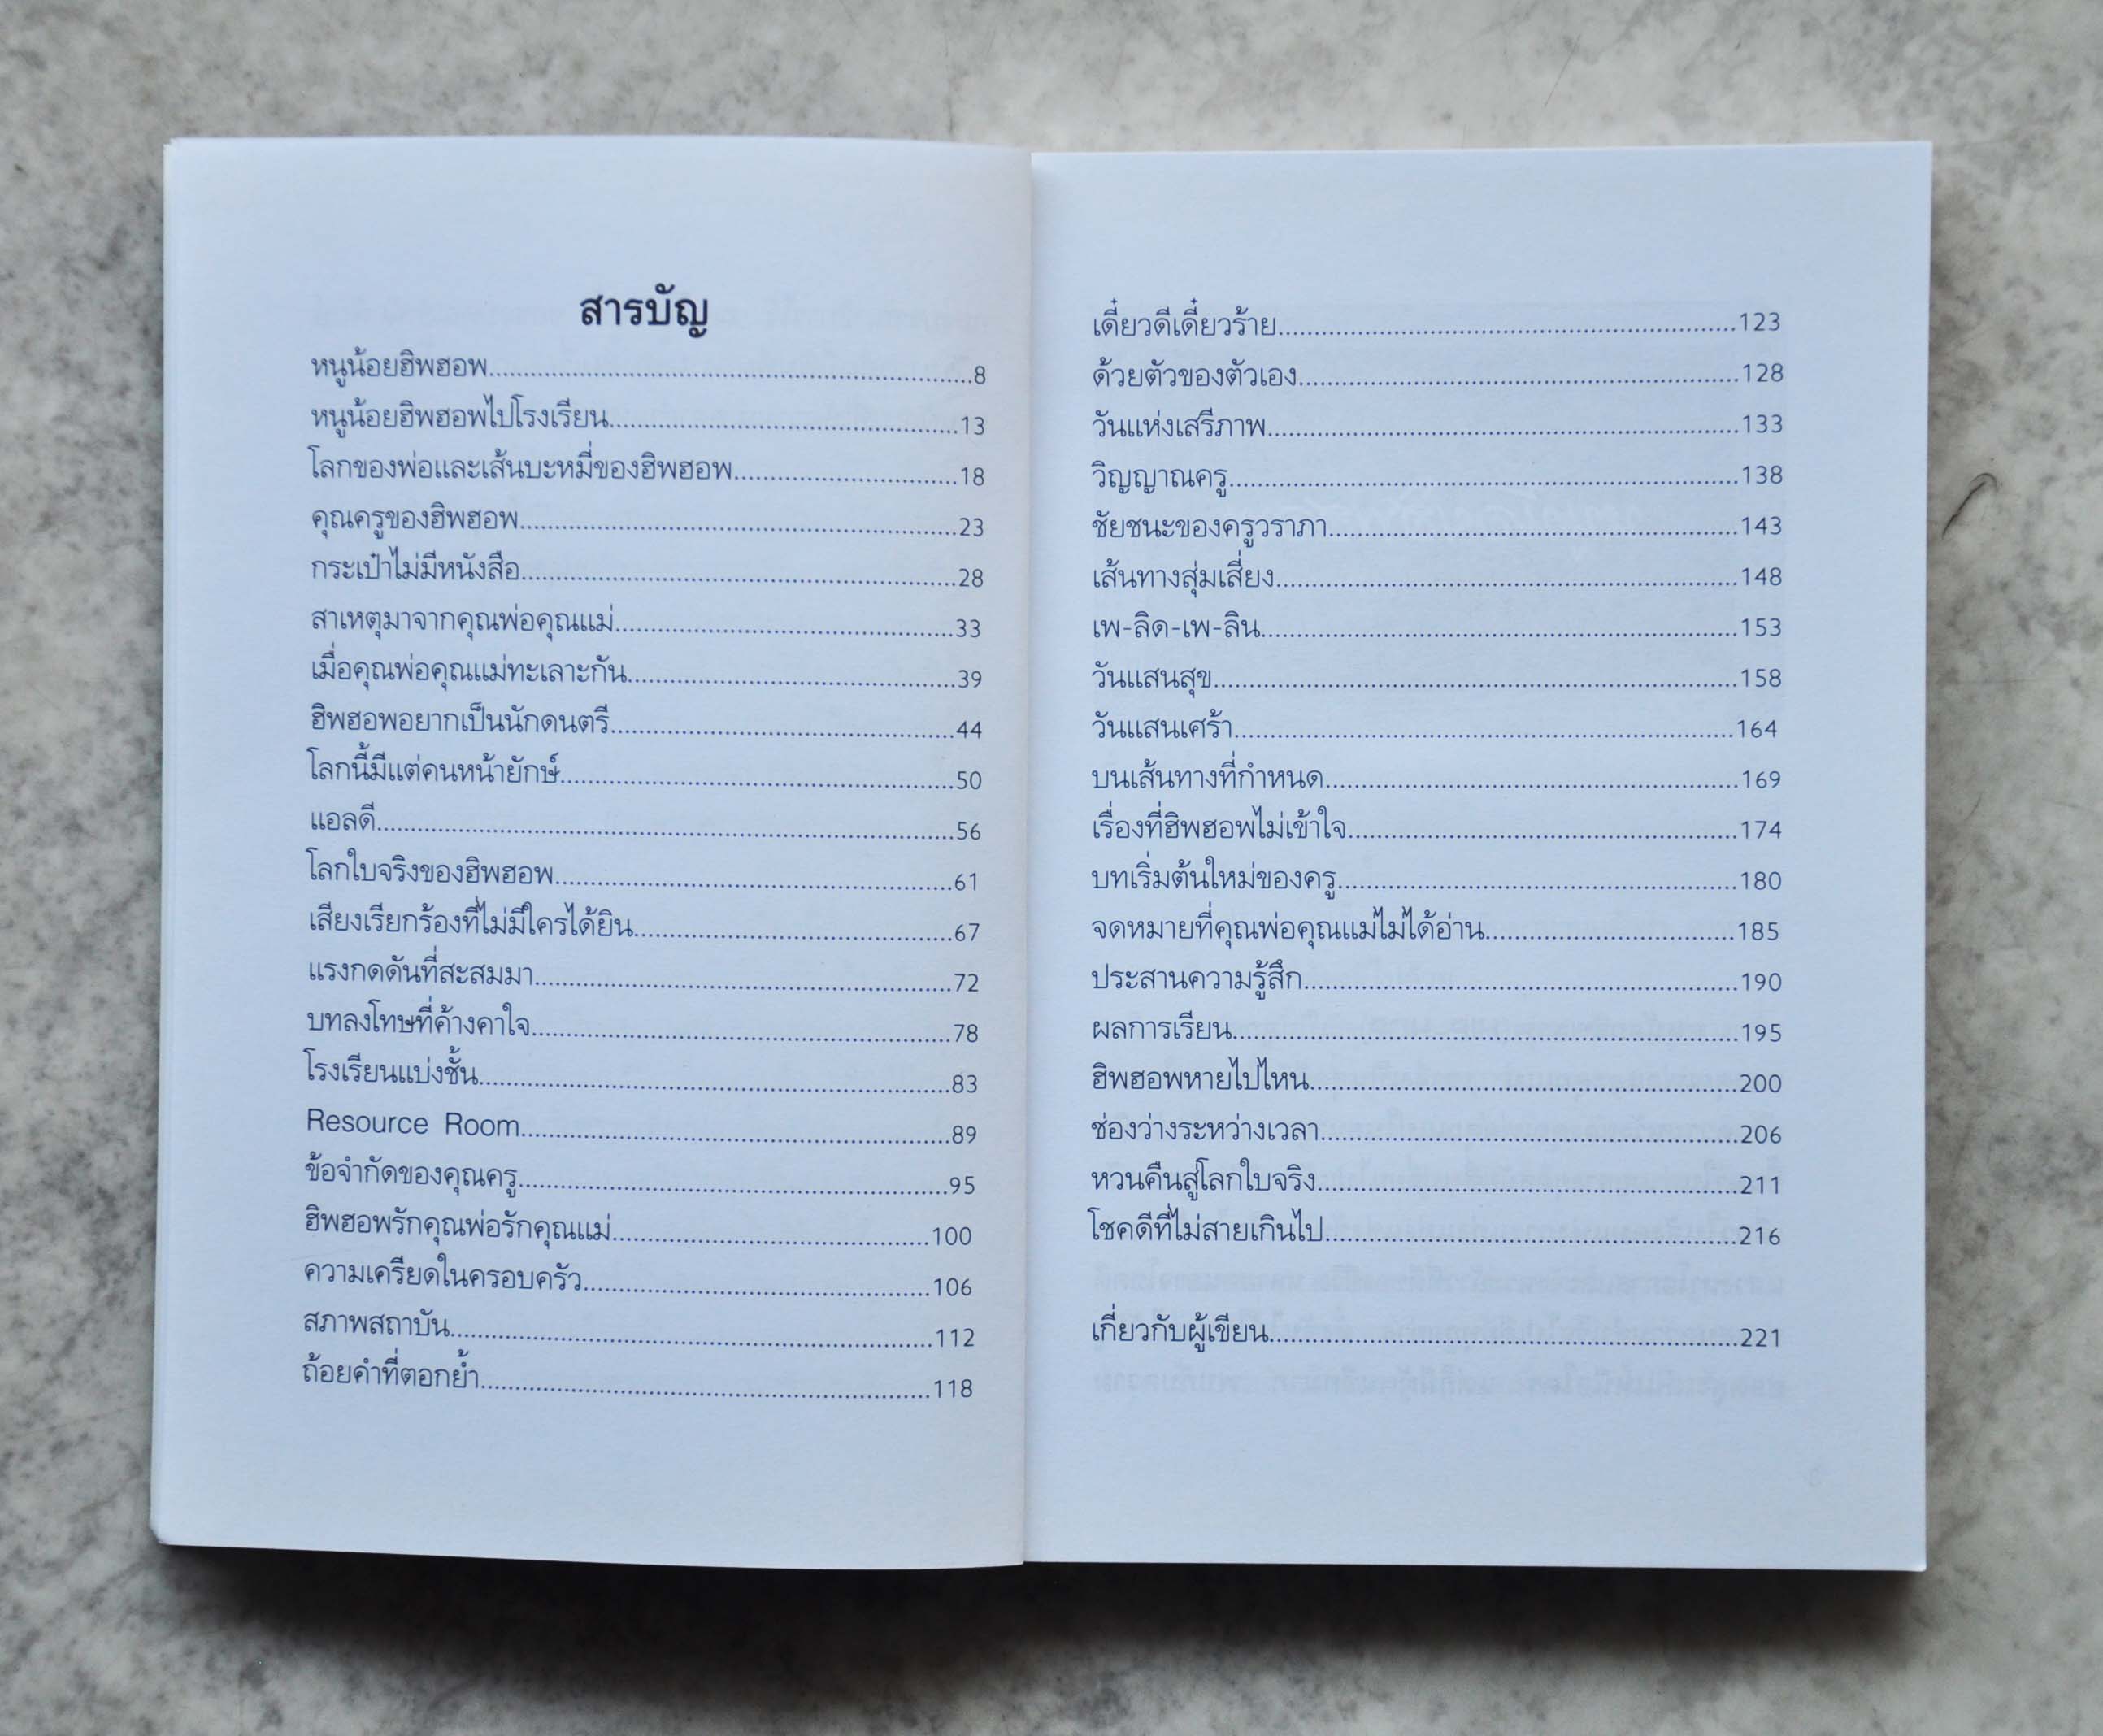 สารบัญ
หนูน้อยฮิพฮอพ........8
หนูน้อยฮิพฮอพไปโรงเรียน........13
โลกของพ่อและเส้นบะหมี่ของฮิพฮอพ........18
คุณครูของฮิพฮอพ........23
กระเป๋าไม่มีหนังสือ........28
สาเหตุมาจากคุณพ่อคุณแม่........33
เมื่อคุณพ่อคุณแม่ทะเลาะกัน........39
ฮิพฮอพอยากเป็นนักดนตรี........44
โลกนี้มีแต่คนหน้ายักษ์........50
แอลดี........56
โลกใบจริงของฮิพฮอพ........61
เสียงเรียกร้องที่ไม่มีใครได้ยิน........67
แรงกดดันที่สะสมมา........72
บทลงโทษที่ค้างคาใจ........78
โรงเรียนแบ่งชั้น........83
Resource Room........89
ข้อจำกัดของคุณครู........95
ฮิพฮอพรักคุณพ่อรักคุณแม่........100
ความเครียดในครอบครัว........106
สภาพสถาบัน........112
ถ้อยคำที่ตอกย้ำ........118
เดี๋ยวดีเดี๋ยวร้าย........123
ด้วยตัวของตัวเอง........128
วันแห่งเสรีภาพ........133
วิญญาณครู........138
ชัยชนะของครูวราภา........143
เส้นทางสุ่มเสี่ยง........148
เพ-ลิด-เพ-ลิน........153
วันแสนสุข........158
วันแสนเศร้า........164
บนเส้นทางที่กำหนด........169
เรื่องที่ฮิพฮอพไม่เข้าใจ........174
บทเริ่มต้นใหม่ของครู........180
จดหมายที่คุณพ่อคุณแม่ไม่ได้อ่าน........185
ประสานความรู้สึก........190
ผลการเรียน........195
ฮิพฮอพหายไปไหน........200
ช่องว่างระหว่างเวลา........206
หวนคืนสู่โลกใบจริง........211
โชคดีที่ไม่สายเกินไป........216
เกี่ยวกับผู้เขียน........221